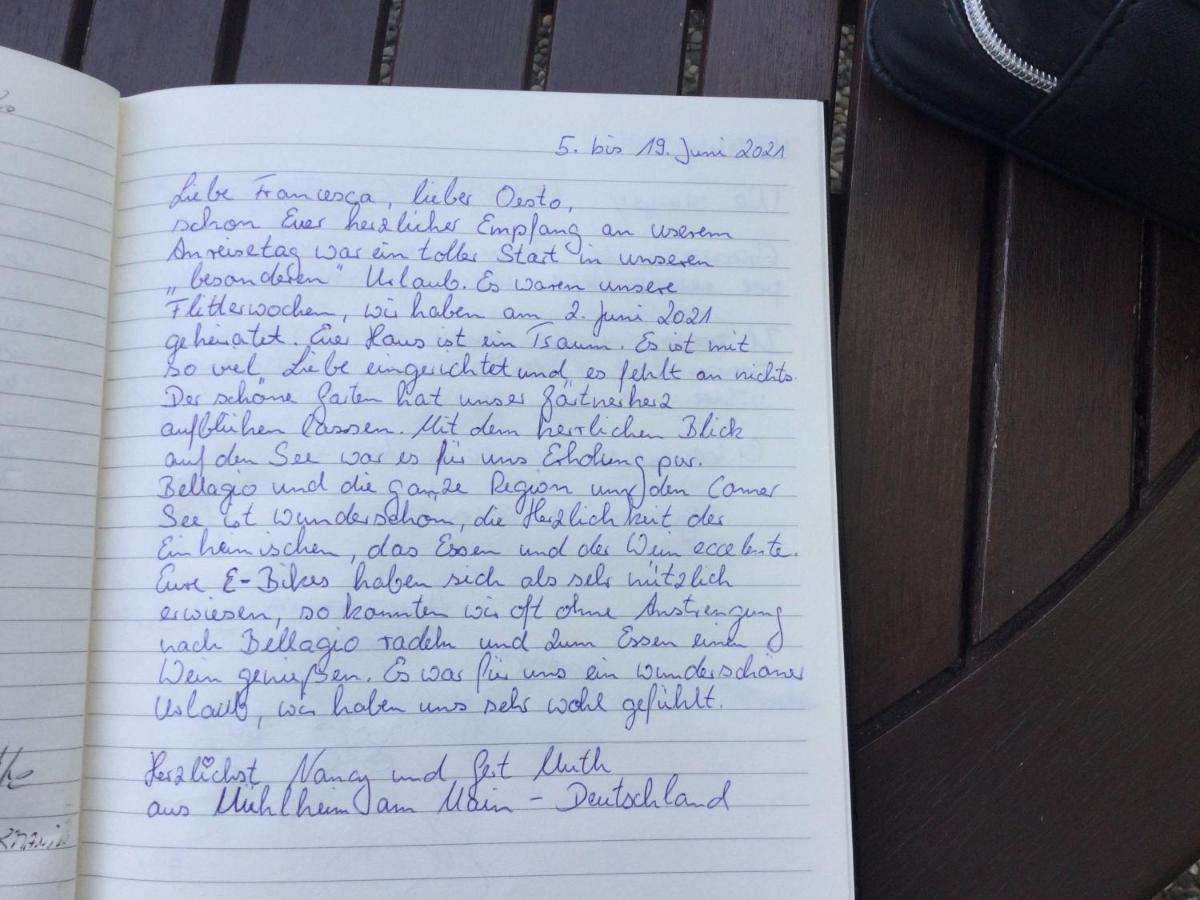 5. bis 19. Juni 2021
Liebe Francesca, lieber Oesto,
schon Euer herzlicher Empfang an userem
Anreisetag war ein toller Start in unseren
„besonderen" Urlaub. Es waren unsere
Flitterwochen, wir haben am 2. Juni 2021
geheiratet. Euer Haus ist ein Traum. Es ist mit
so viel Liebe eingerichtet und es fehlt an nichts.
Der schöne Garten hat unser Gärtnerherz
aufblühen lassen. Mit dem herrlichen Blick
auf den See war es für uns Erholung pur.
Bellagio und die ganze Region um den Comer
See ist wunderschön, die Herzlichkeit der
Einheimischen, das Essen und der Wein eccelente.
Eure E-Bikes haben sich als sehr nützlich
erwiesen, so konnten wir oft ohne Anstrengung
nach Bellagio radeln und zum Essen einen
Wein genießen. Es war für uns ein wunderschöner
Urlaub, wir haben uns sehr wohl gefühlt.
Herzlichst Nancy und Gert Muth
aus Mühlheim am Main - Deutschland